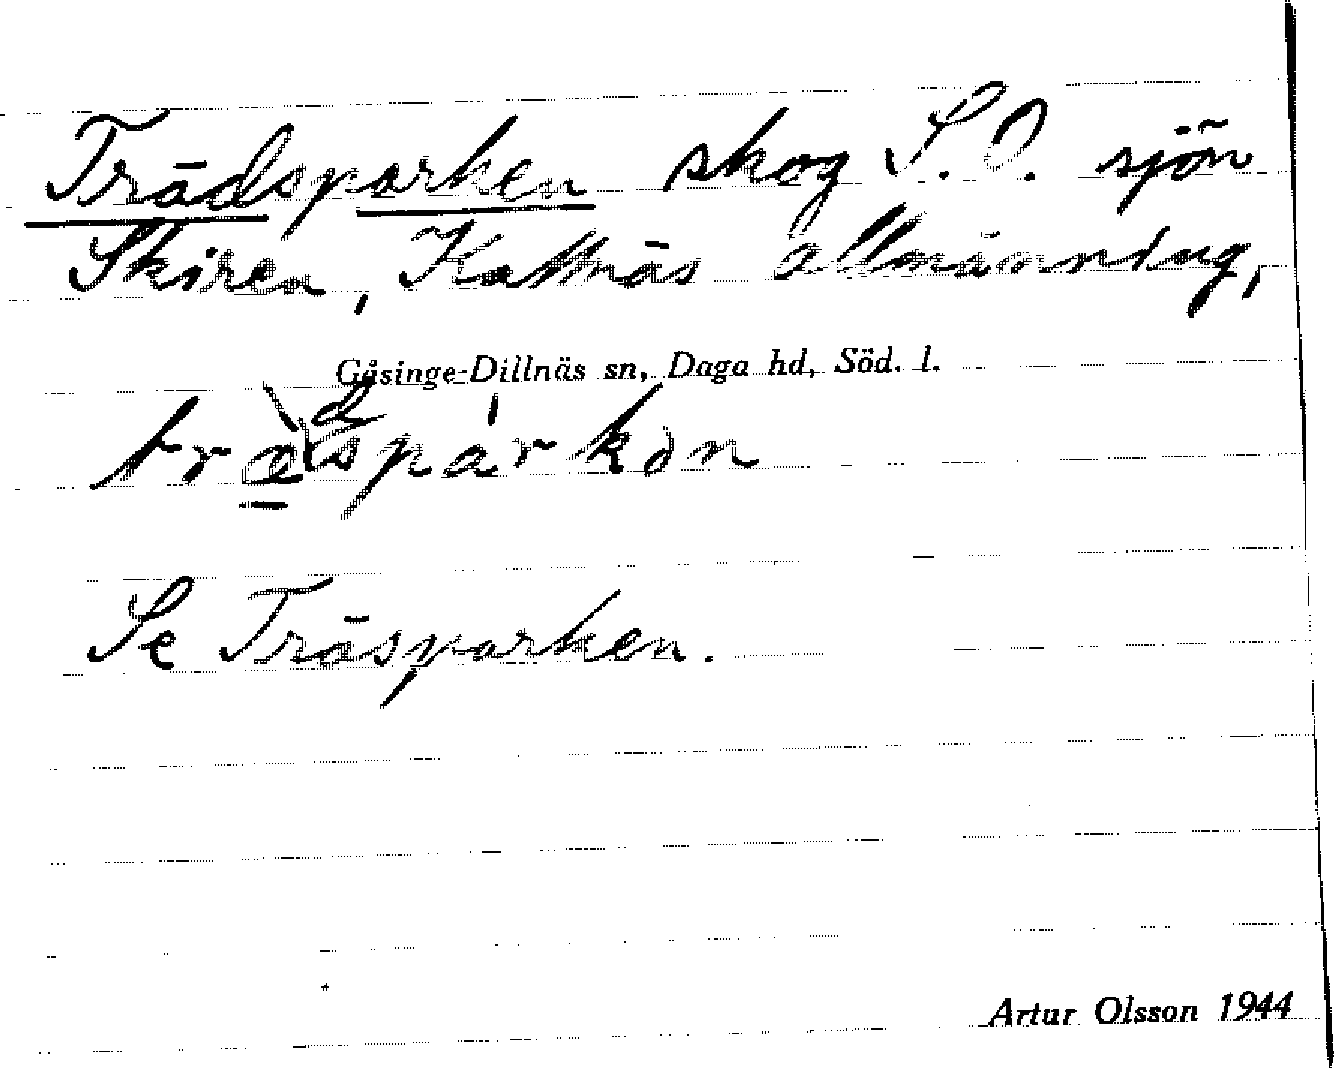 Trädsparken skog S.O. sjön
Skiren, Kattnäs allmänning,
Gåsinge-Dillnäs sn, Daga hd, Söd. l.
Se Träsparken.
Artur Olsson 1944